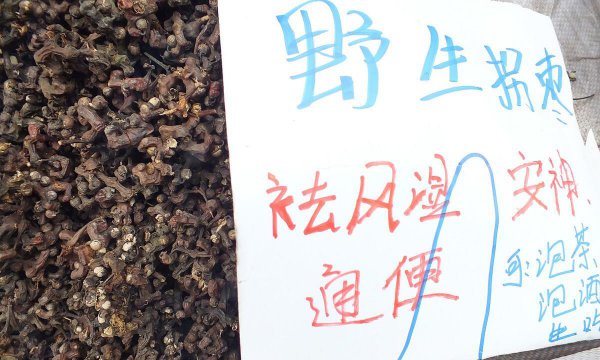 野生拐枣
祛风湿 安神、
通便
可:泡茶
泡酒
生吃